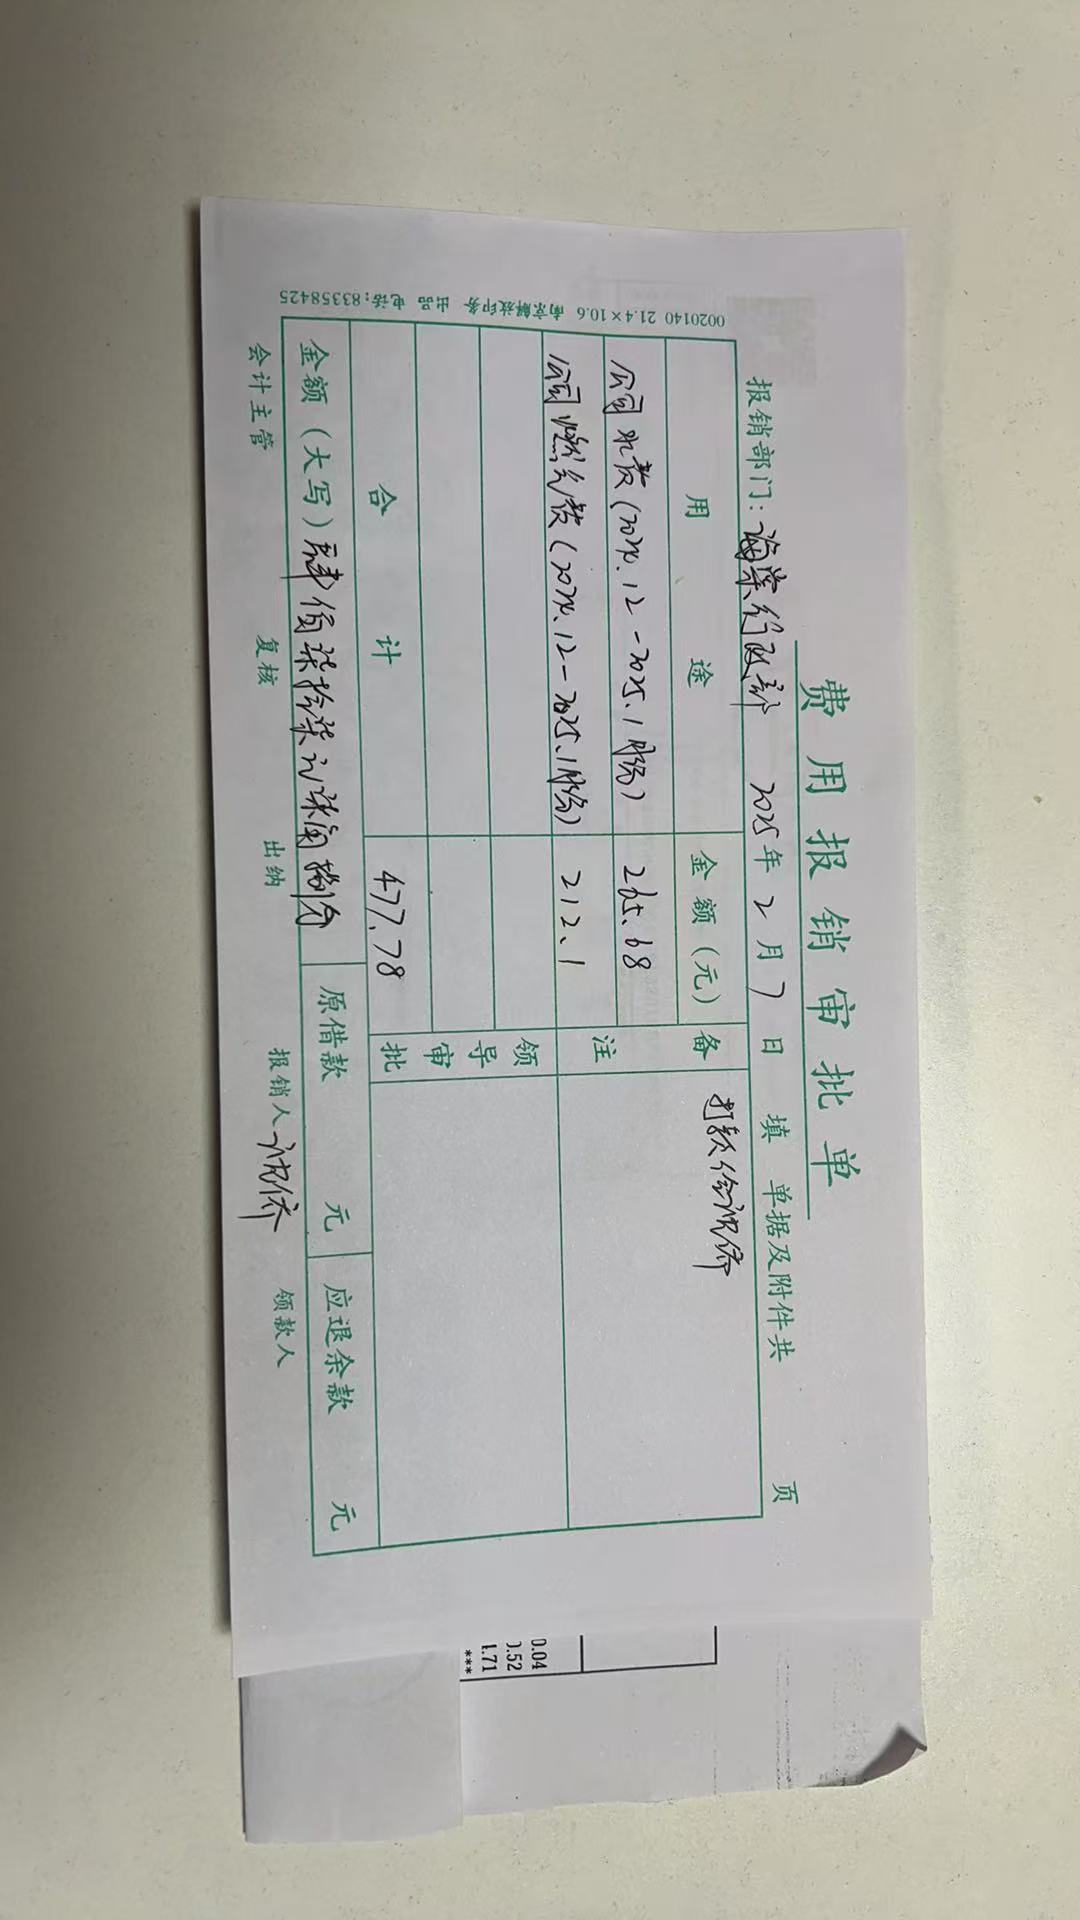 费用报销审批单
报销部门：海棠行政部 2025年2月7日 填 单据及附件共 页
用途 金额（元） 备注 打款给
公司水费（2024.12-2025.1月份） 265.68
公司燃气费（2024.12-2025.1月份） 212.1
领导审批
合计 477.78
金额（大写）肆佰柒拾柒元柒角捌分 原借款 元 应退余款 元
会计主管 复核 出纳 报销人 领款人
0020140 21.4×10.6 南京解放印务 出品 电话：83358425
0.04
0.52
1.71
***